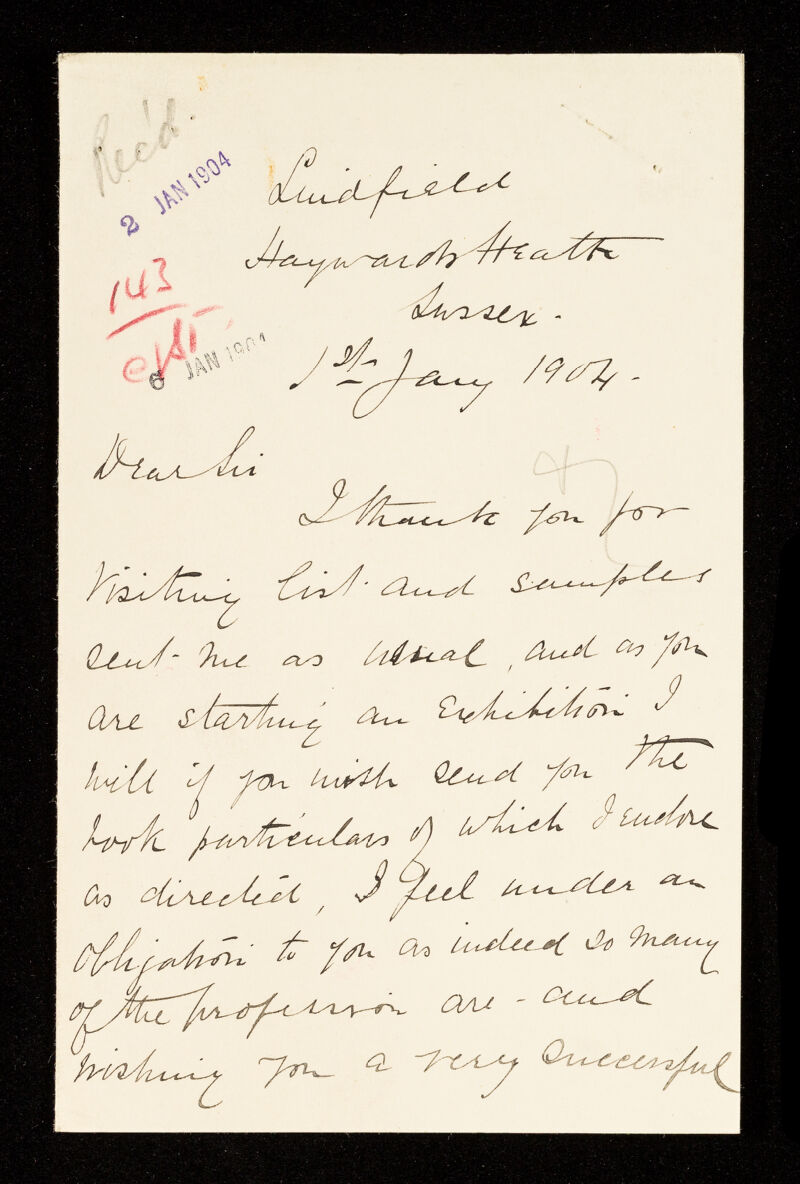 Rec'd.
2 JAN 1904
143
6 JAN 1904
Lindfield
Haywards Heath
Sussex -
1st Jany 1904 -
Dear Sir
I thank you for
Visiting list and samples
sent me as usual, and as you
are starting an Exhibition I
will if you wish send you the
book particulars of which I enclose
as directed, I feel under an
obligation to you as indeed so many
of the profession are - and
wishing you a very successful